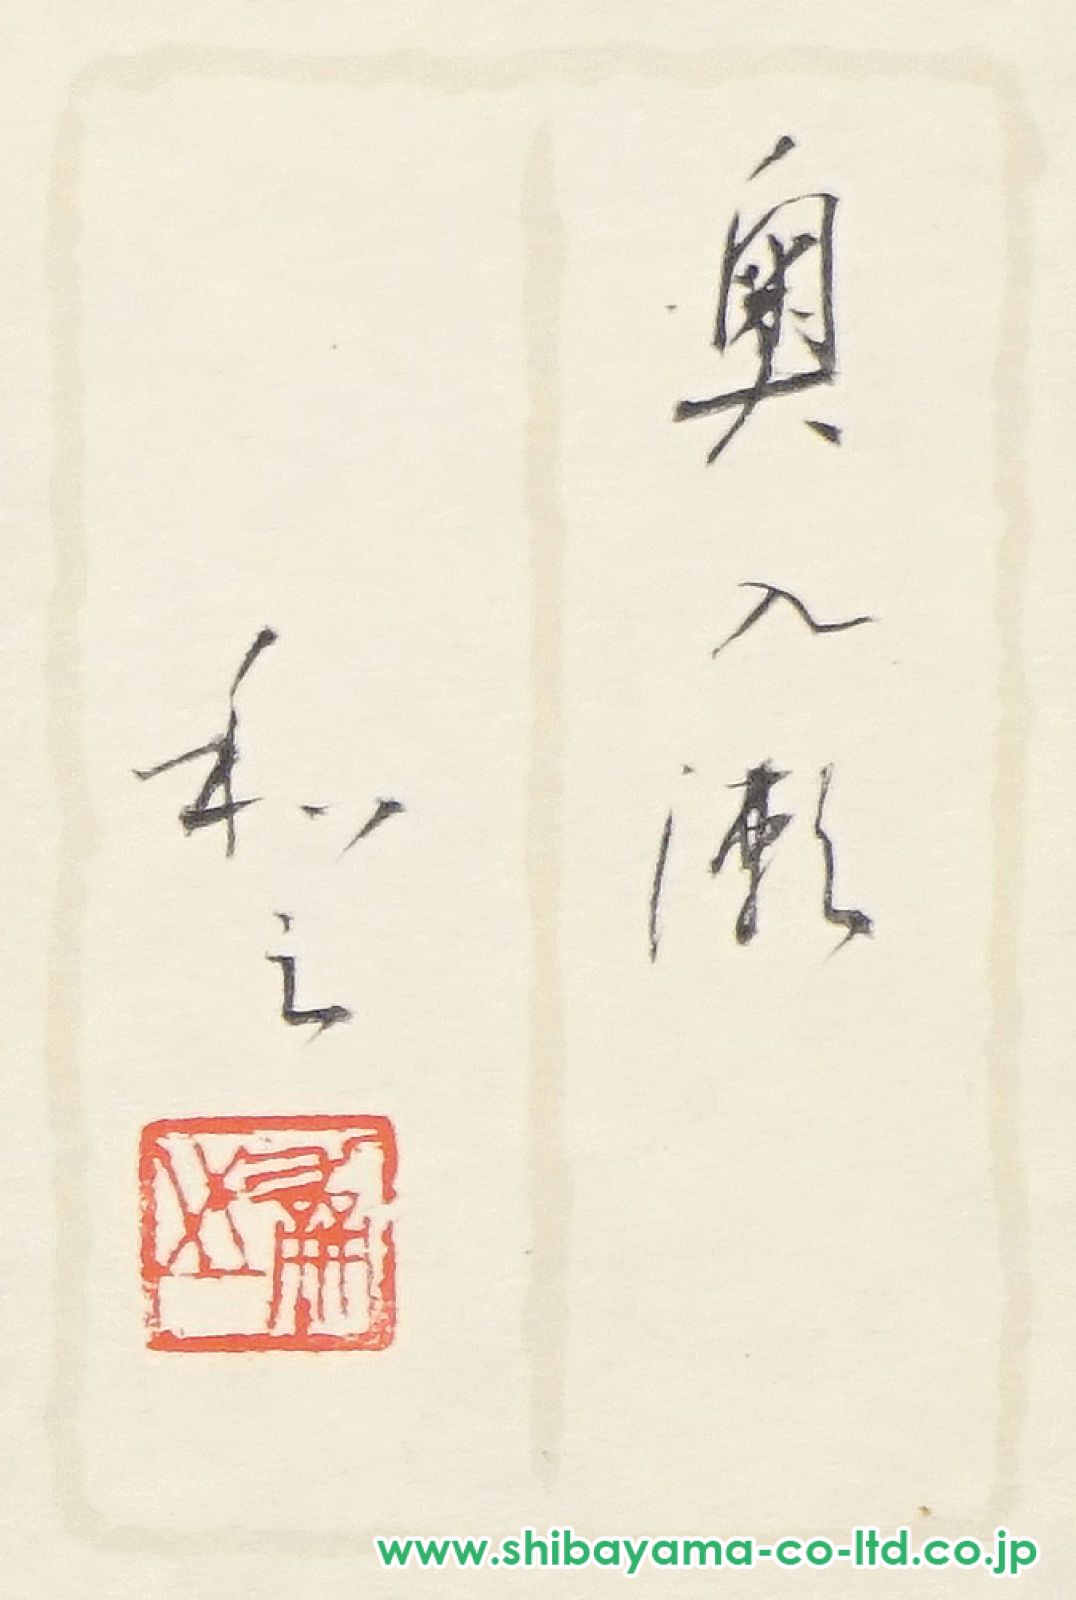 奥入瀬
和之
www.shibayama-co-ltd.co.jp